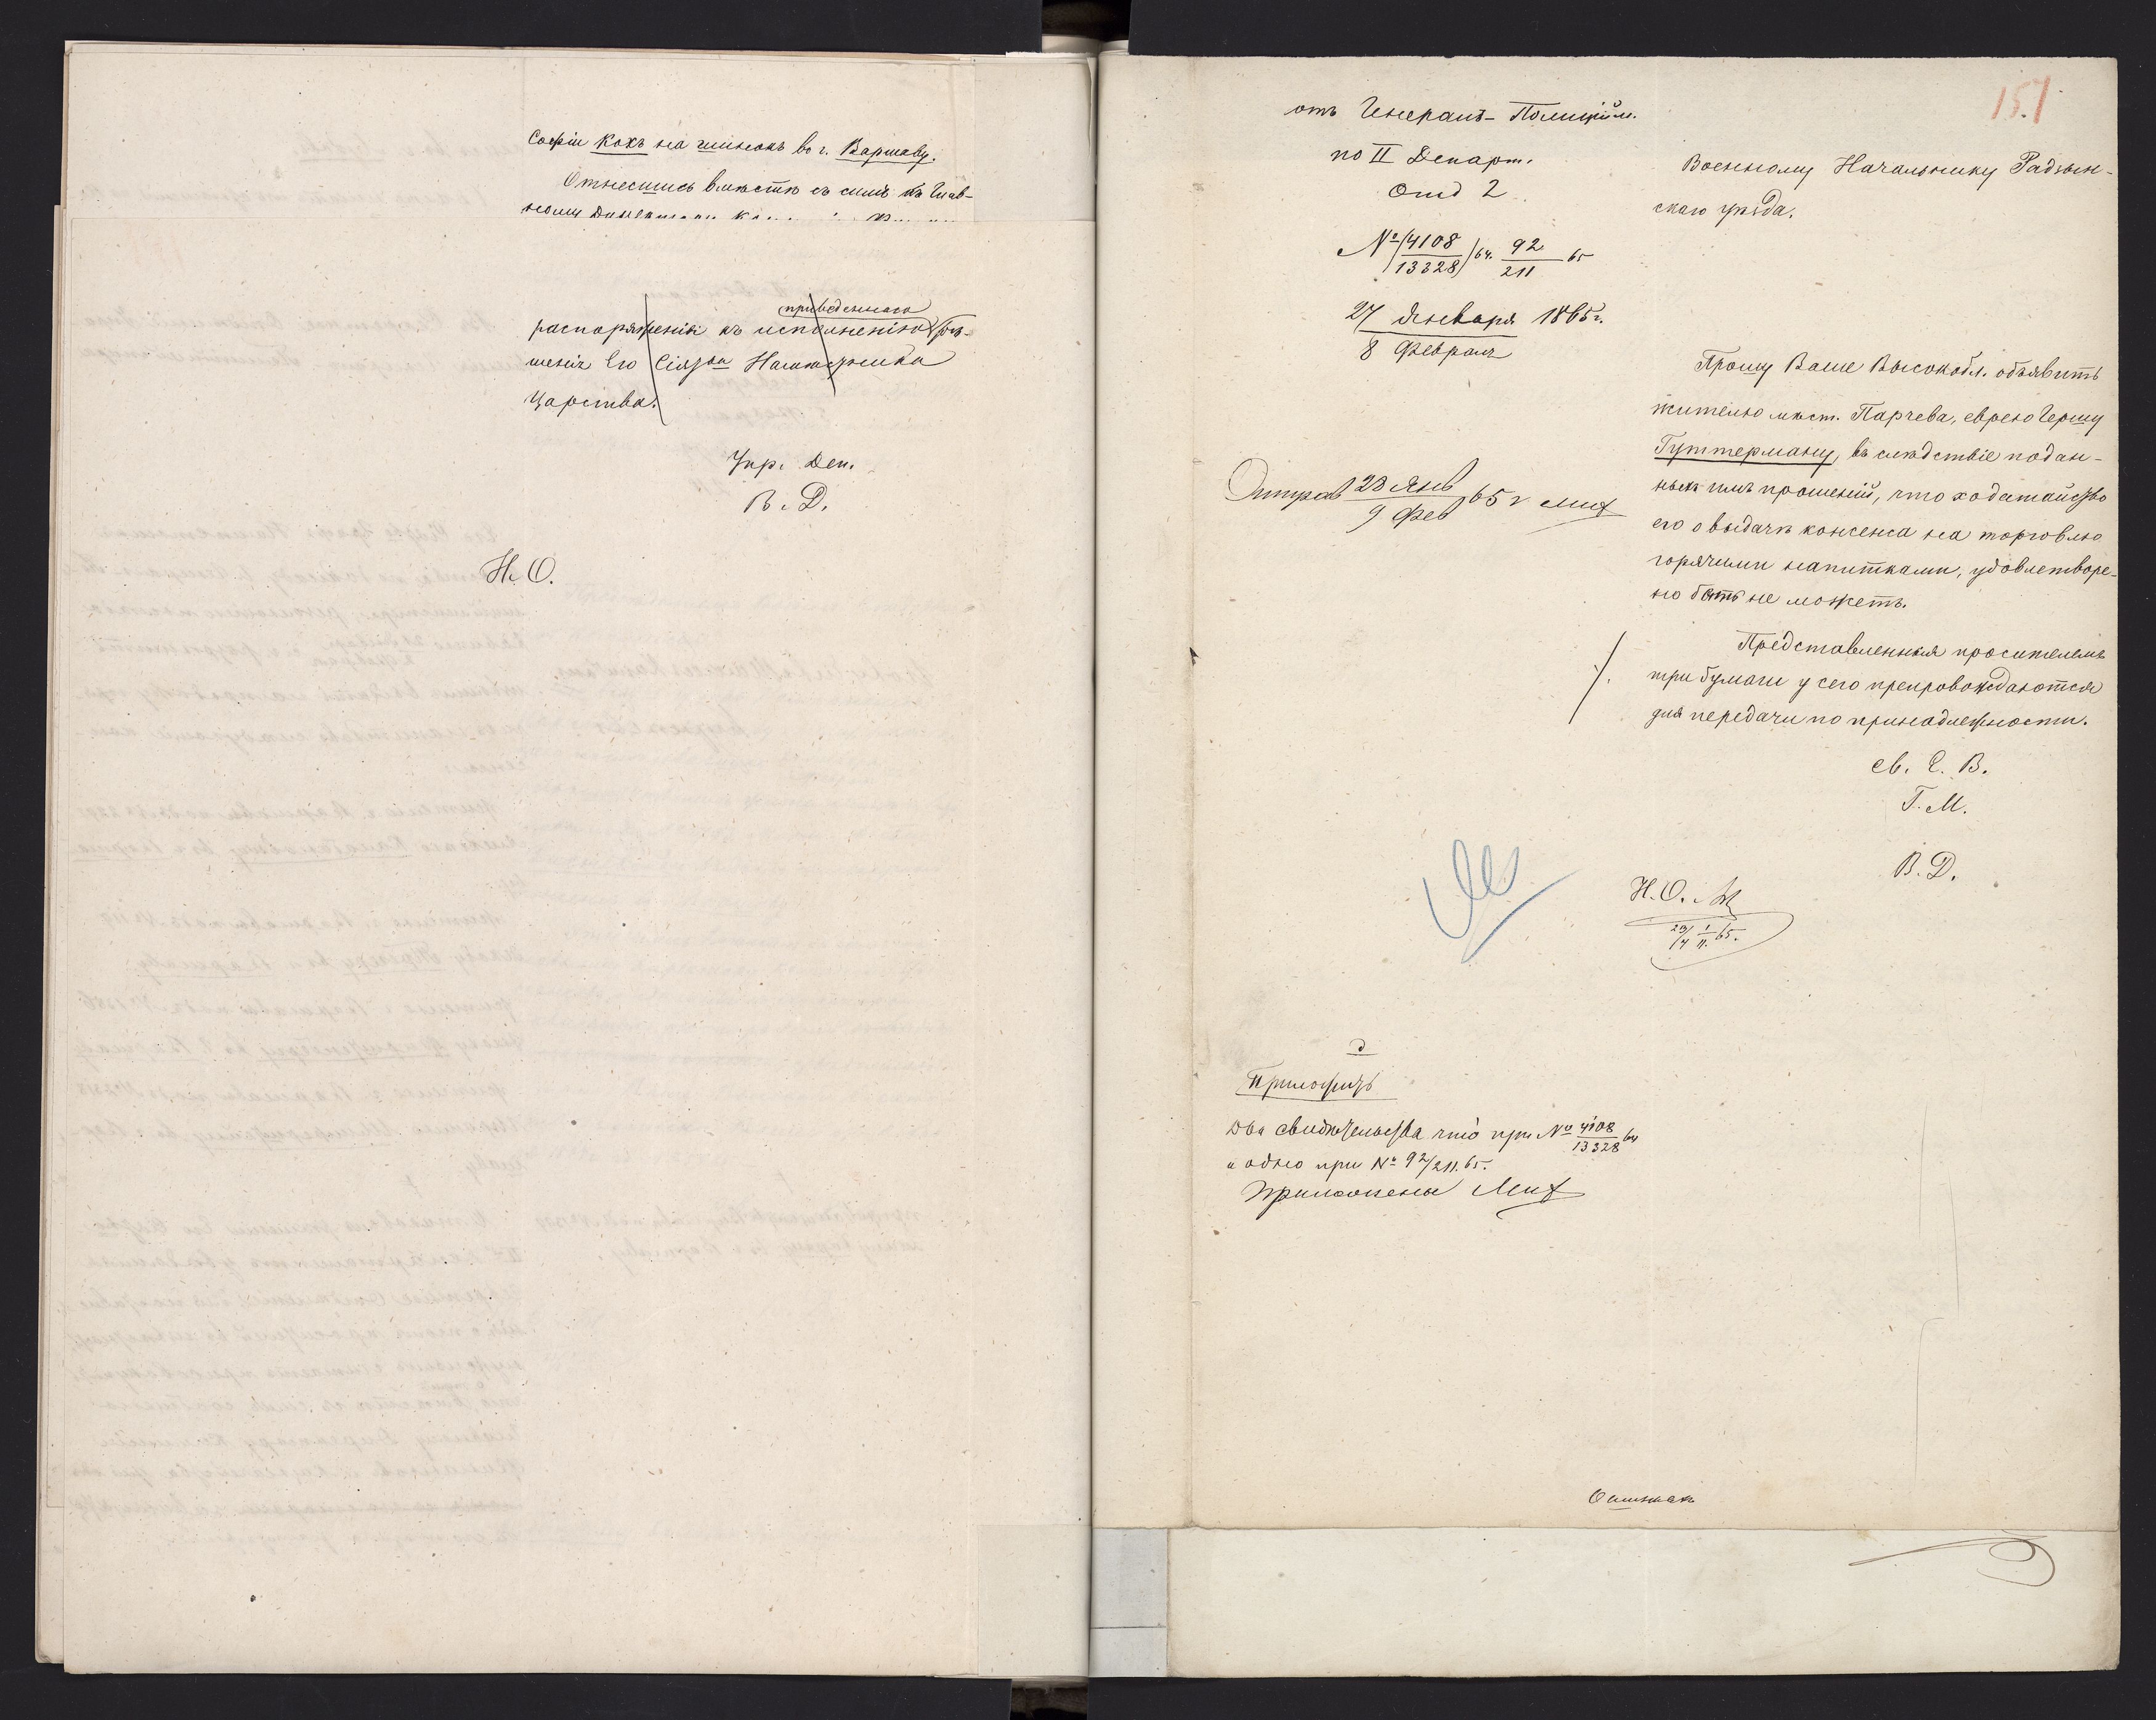 Софіи Кохъ на шинокъ въ г. Варшаву.
Отнесшись вмѣстѣ съ симъ къ Глав-
ному
приведеннаго
распоряженія къ исполненію рѣ-
шенія Его Сіят[ва] Намѣстника
Царства.
Упр. Деп.
В. Д.
Н. О.
151
отъ Генералъ-Полиційм.
по II Департ.
Отд 2
№ (4108/13328) 64. 92/211 65
27 Января 1865 г.
8 Февраля
Военному Начальнику Радзын-
скаго уѣзда.
Прошу Ваше Высокобл. объявить
жителю мѣст. Парчева, еврею Гершу
Гуттерману, въ слѣдствіе подан-
ныхъ имъ прошеній, что ходатайство
его о выдачѣ консенса на торговлю
горячими напитками, удовлетворе-
но быть не можетъ.
Представленныя просителемъ
три бумаги у сего препровождаются
для передачи по принадлежности.
Отправ 28 Янв 65 г
9 Фев
св. Е. В.
Г. М.
В. Д.
Н. О.
Приложить
Два свидѣтельства что при № 4108/13328 64
и одно при № 92/211. 65.
Приложены